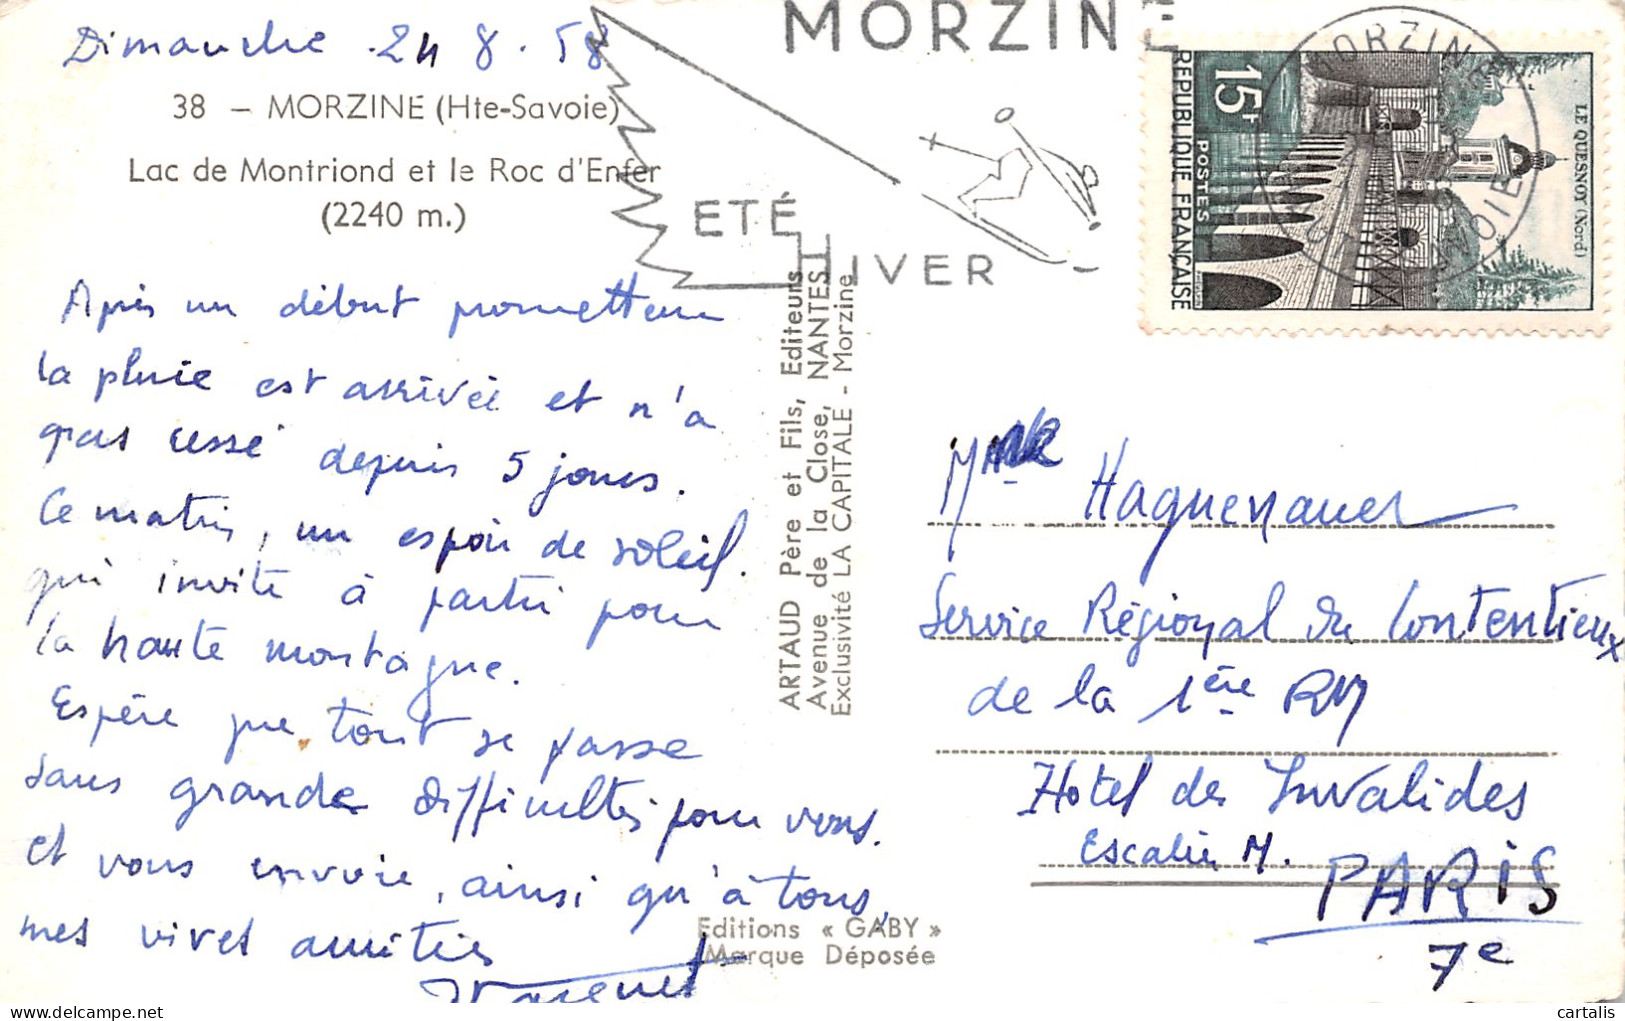 Dimanche 24 8.58
38 – MORZINE (Hte-Savoie)
Lac de Montriond et le Roc d'Enfer
(2240 m.)
Après un début prometteur
la pluie est arrivée et n'a
pas cessé depuis 5 jours.
Ce matin, un espoir de soleil.
qui invite à partir pour
la haute montagne.
Espère que tout se passe
sans grande difficultés pour vous.
et vous envoie, ainsi qu'à tous,
mes vives amitiés
MORZINE
ETÉ
HIVER
ARTAUD Père et Fils, Editeurs
Avenue de la Close, NANTES
Exclusivité LA CAPITALE - Morzine
Editions « GABY »
Marque Déposée
15F
POSTES
REPUBLIQUE FRANÇAISE
LE QUESNOY (Nord)
MORZINE
SAVOIE
Haguenauer
Service Régional du Contentieux
de la 1ère RM
Hotel des Invalides
Escalier M.
PARIS
7e
cartalis